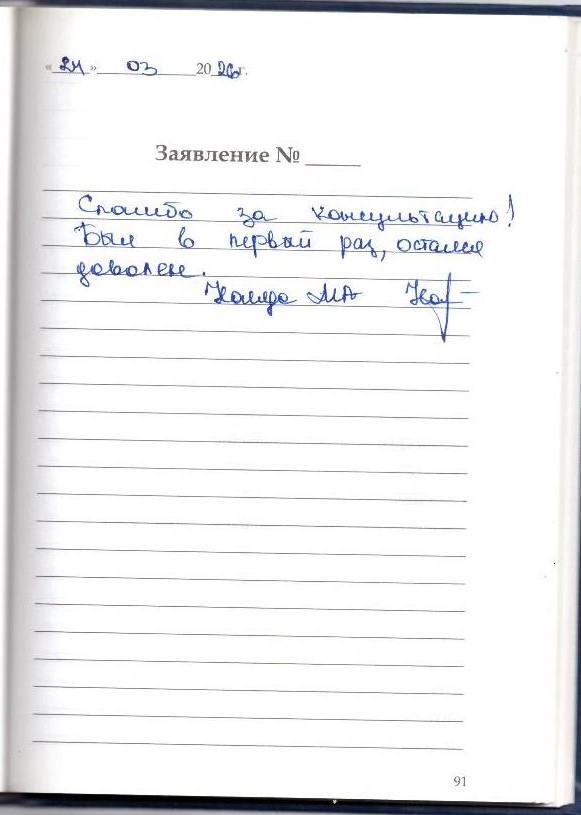 « 24 » 03 2026 г.
Заявление № ______
Спасибо за консультацию!
Был в первый раз, остался
доволен.
МА
91